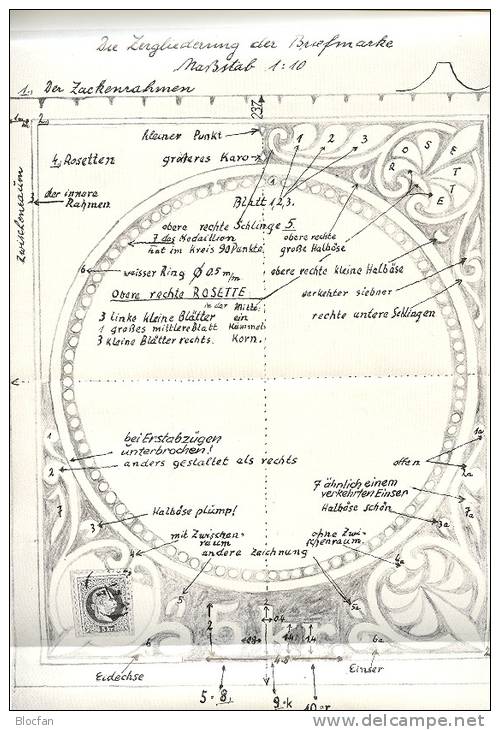 Die Zergliederung der Briefmarke
Maßstab 1:10
1. Der Zackenrahmen
237
2.
kleiner Punkt
1 2 3
4. Rosetten
größeres Karo
ROSETTE
1
Zwischenraum
3
der innere
Rahmen
Blatt 1,2,3.
obere rechte Schlinge 5.
7 das Medaillion
hat im Kreis 90 Punkte
obere rechte
große Halböse
6
weisser Ring Ø 0,5 m/m
obere rechte kleine Halböse
Obere rechte ROSETTE
in der Mitte
ein
Kümmel-
Korn.
verkehrter siebner
3 linke kleine Blätter
1 großes mittlere Blatt
3 kleine Blätter rechts.
rechte untere Schlingen
1
bei Erstabzügen
unterbrochen!
anders gestaltet als rechts
2
offen
1a
2a
7
7 ähnlich einem
verkehrten Einser
7a
Halböse plump!
Halböse schön
3
3a
mit Zwischen-
raum
ohne Zwi-
schenraum.
4
andere Zeichnung
4a
5
5a
2
0,4
14
14
6
6a
4.8
Eidechse
Einser
5 = 8.
9 = k
10 = r
Blocfan
www.delcampe.net